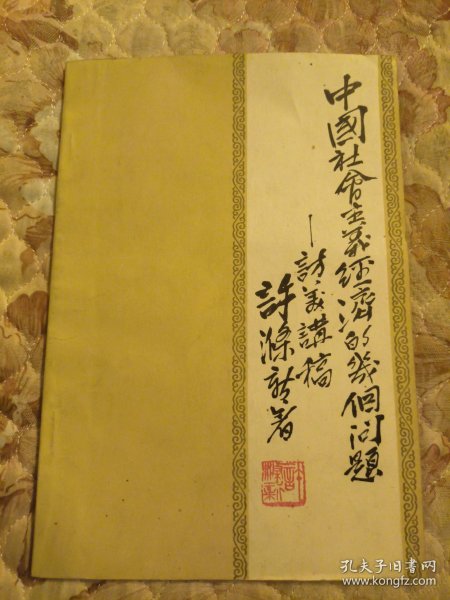 中國社會主義經濟的幾個问題
—訪美講稿
許滌新著
孔夫子旧书网
www.kongfz.com